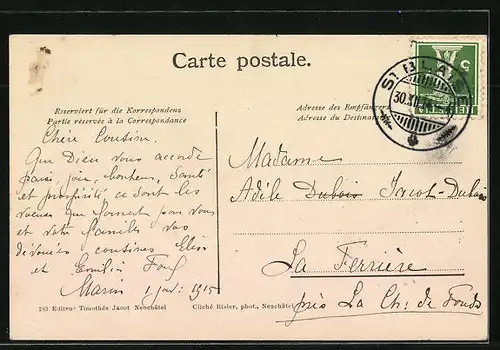 Carte postale.
Reserviert für die Korrespondenz
Partie réservée à la Correspondance
Adresse des Empfängers
Adresse du Destinataire
ST BLAISE
30.XII.14
Chère Cousine.
Que Dieu vous accorde
paix, joie, bonheur, santé
et prospérité ce sont les
voeux que forment pour vous
et votre famille vos
dévouées cousines Elise
et Emilie
Marin 1 janv. 1915
Madame
Adèle Dubois Jacot-Dubois
La Ferrière
près La Ch: de Fonds
Editeur Timothée Jacot Neuchâtel
Cliché Risler, phot., Neuchâtel